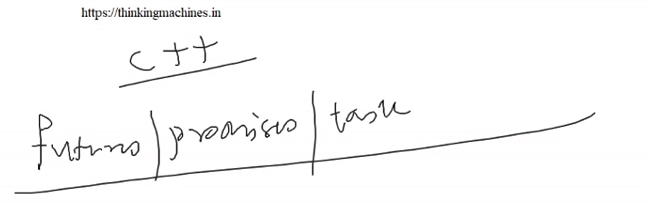 https://thinkingmachines.in
C++
futures | promises | task